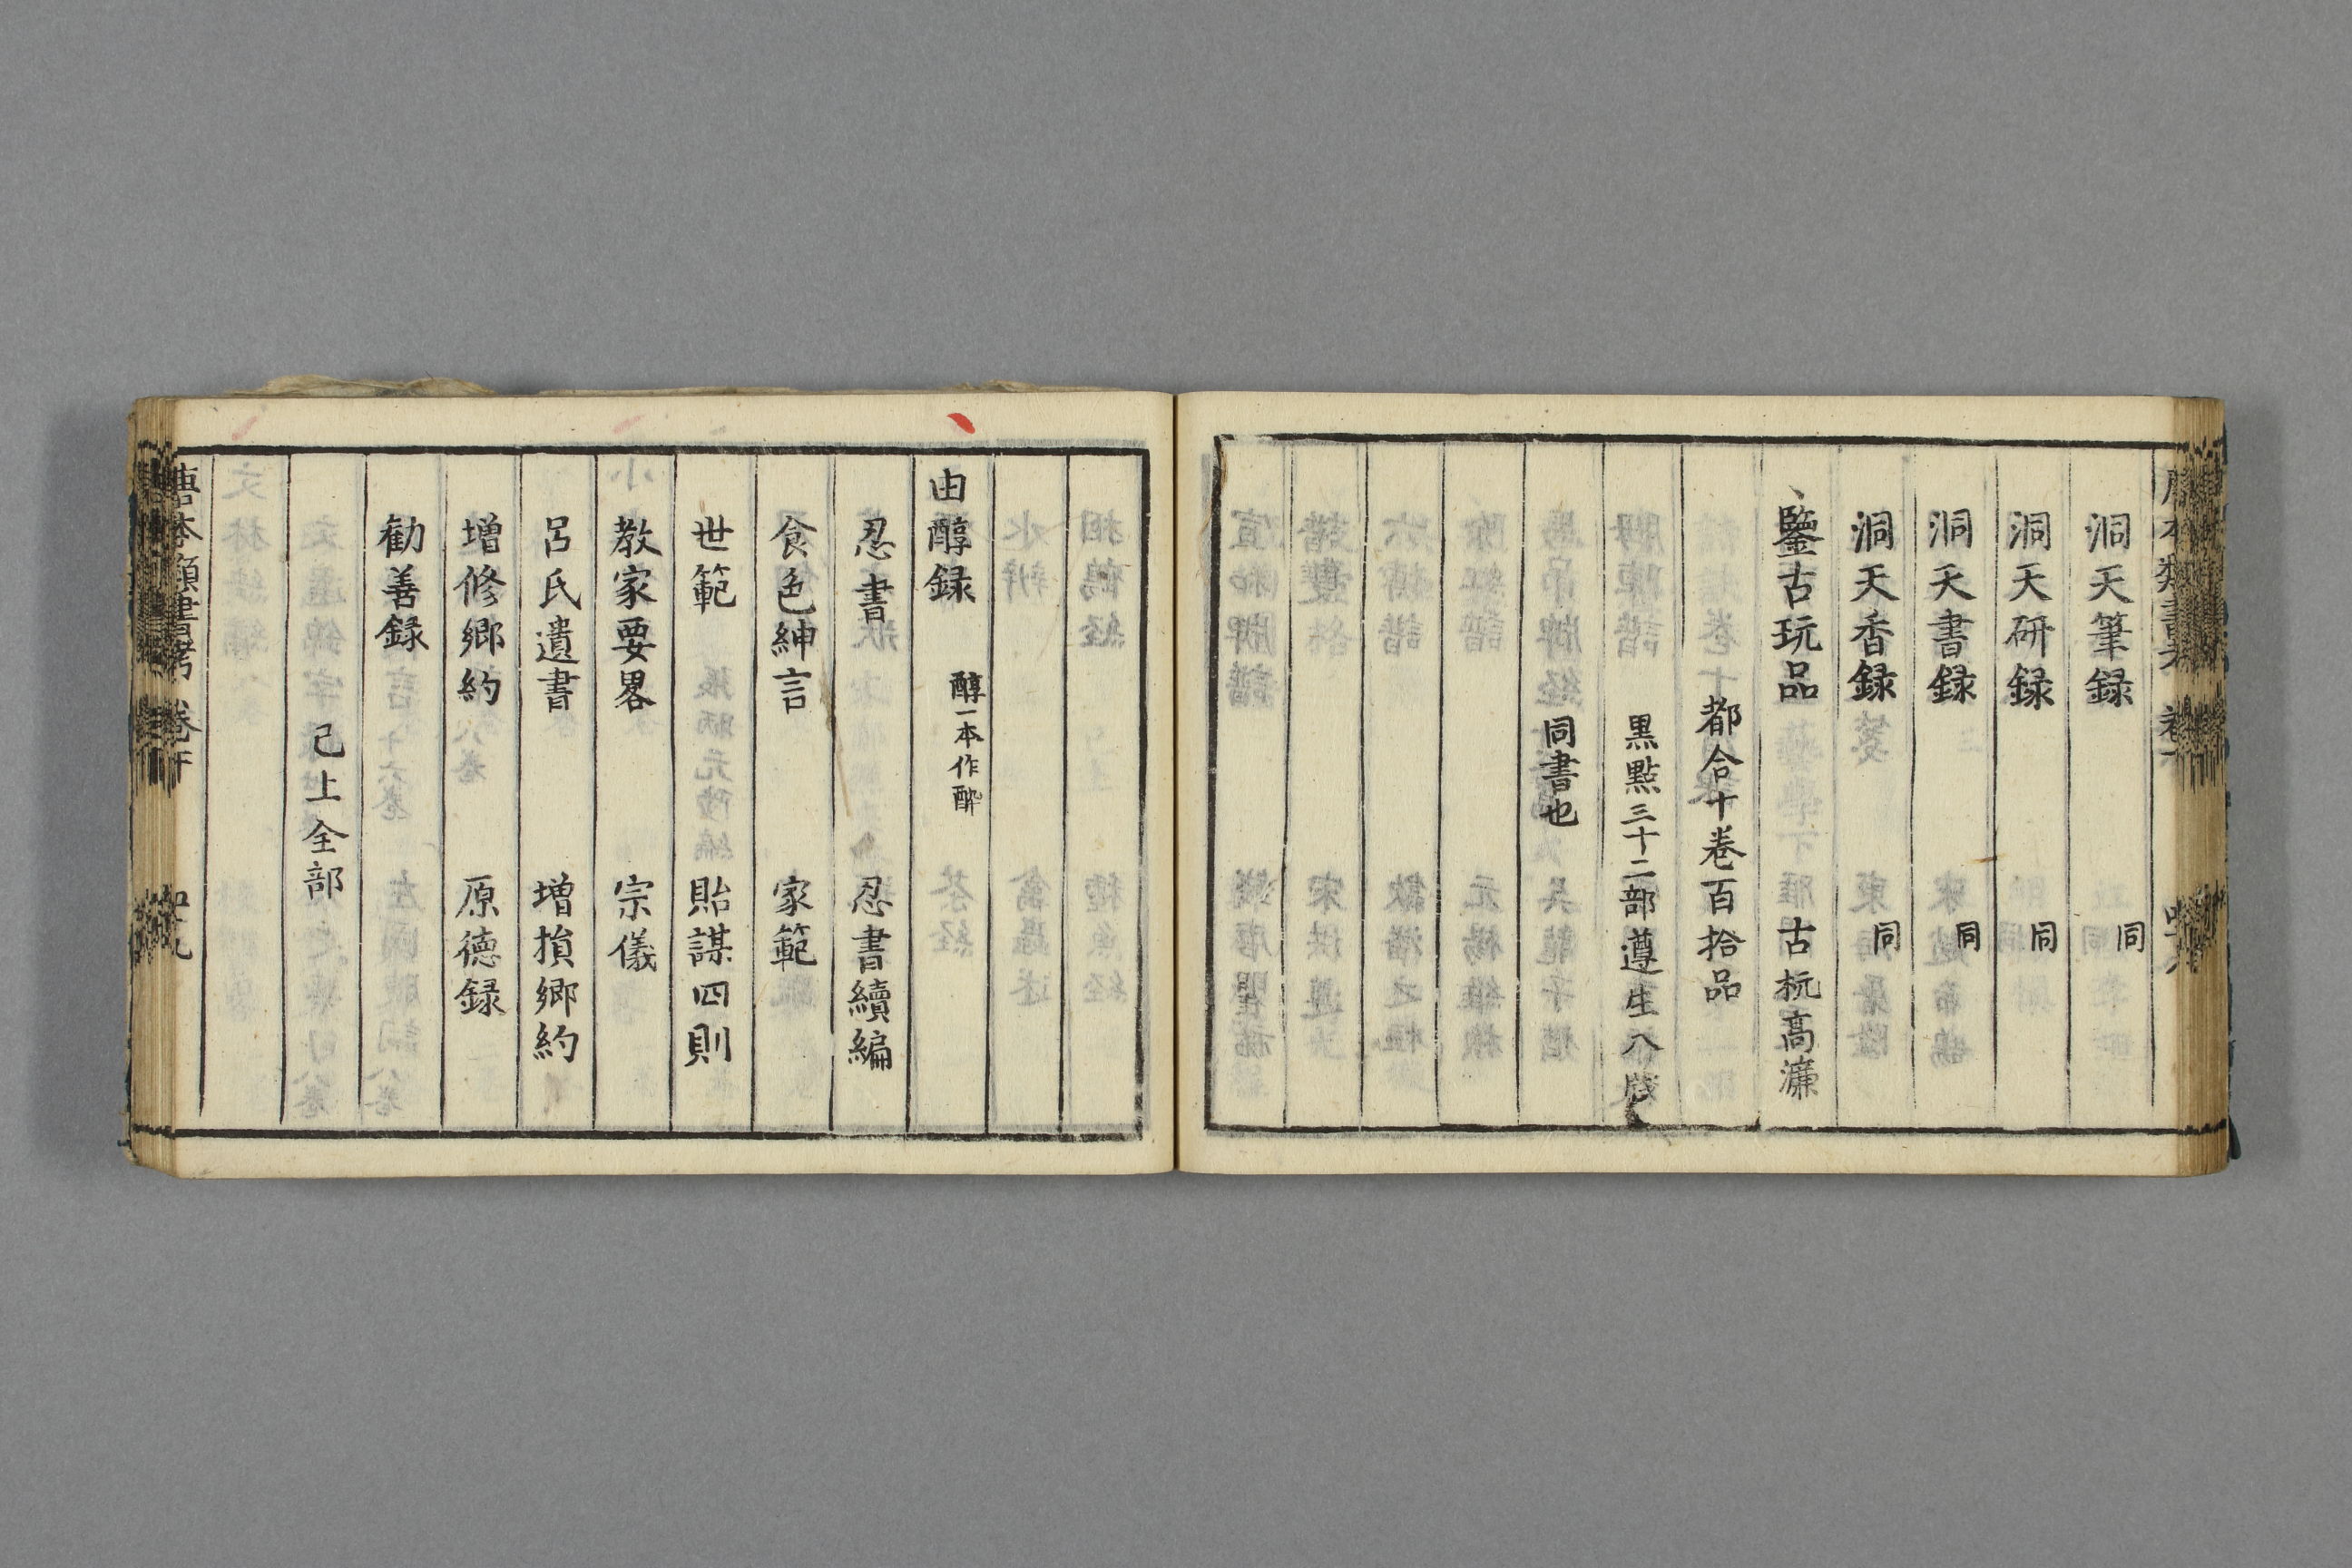 洞天筆録 同
洞天研録 同
洞天書録 同
洞天香録 同
鑒古玩品 古杭高濂
都合十巻百拾品
黒點三十二部遵生八牋
同書也
由醇録 醇一本作酔
忍書 忍書續編
食色紳言 家範
世範 貽謀四則
教家要畧 宗儀
呂氏遺書 増損郷約
増修郷約 原徳録
勧善録
己上全部
唐本類書考 巻下